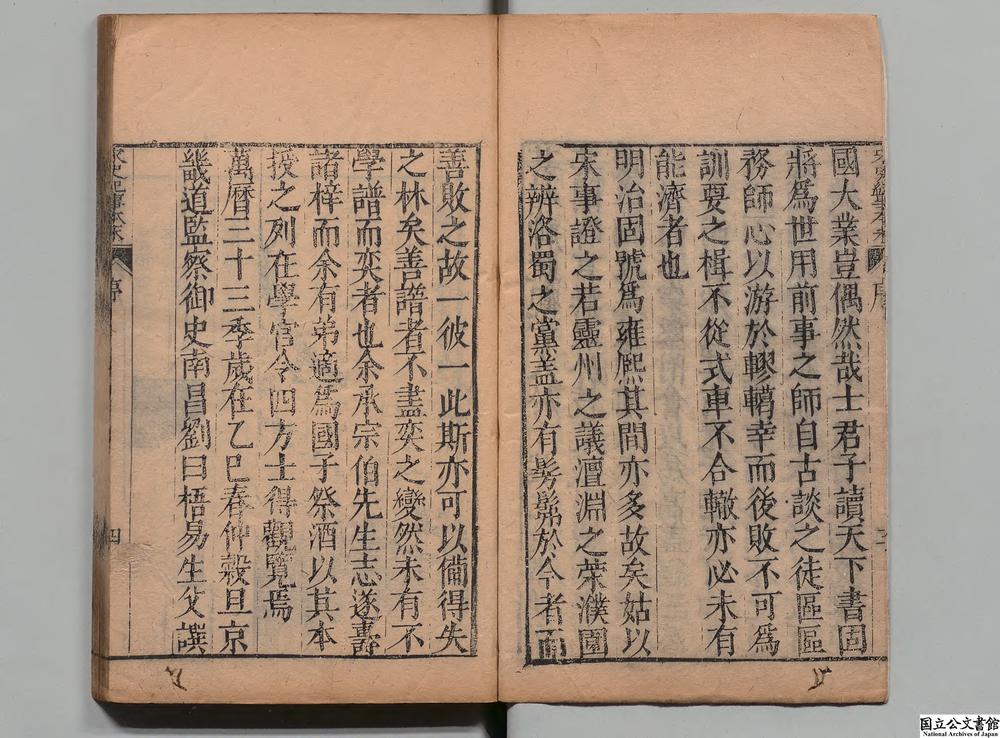 國大業豈偶然哉士君子讀天下書固
將爲世用前事之師自古談之徒區區
務師心以游於轇轕幸而後敗不可爲
訓要之楫不從式車不合轍亦必未有
能濟者也
明治固號爲雍熙其間亦多故矣姑以
宋事證之若靈州之議澶淵之榮濮園
之辨洛蜀之黨盖亦有髣髴於今者而
善敗之故一彼一此斯亦可以備得失
之林矣善譜者不盡奕之變然未有不
學譜而奕者也余承宗伯先生志遂壽
諸梓而余有弟適爲國子祭酒以其本
授之列在學官令四方士得觀覽焉
萬曆三十三季歲在乙巳春仲穀旦京
畿道監察御史南昌劉曰梧易生父譔
宋史紀事本末
序
四
国立公文書館
National Archives of Japan